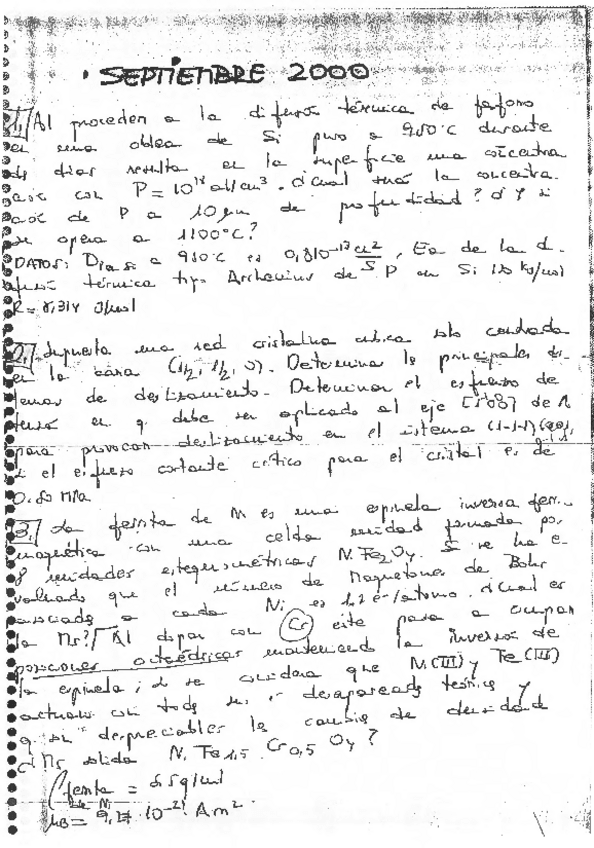 · SEPTIEMBRE 2000
1. Al proceder a la difusión térmica de fósforo
en una oblea de Si puro a 950°C durante
dos días resulta en la superficie una concentra-
ción con P = 10¹⁸ at/cm³. ¿Cual será la concentra-
ción de P a 10 μm de profundidad? ¿Y si
se opera a 1100°C?
DATOS: a 950°C es , Ea de la di-
fusión térmica tipo Arrhenius de P en Si
R = 8,314 J/mol
2. Supuesta una red cristalina cúbica solo centrada
en la cara (1/2, 1/2, 0). Determina los principales sis-
temas de deslizamiento. Determinar el esfuerzo de
en q debe ser aplicado al eje [100] de
para provocar deslizamiento en el sistema
si el esfuerzo cortante crítico para el cristal es de
MPa
3. La ferrita de Ni es una espinela inversa ferri-
magnética con una celda unidad formada por
8 unidades estequiométricas Ni Fe₂O₄. Si se ha e-
valuado que el número de Magnetones de Bohr
asociado a cada Ni es ¿Cual es
la Ms? Al dopar con Cr este pasa a ocupar
posiciones octaédricas manteniendo la inversión de
la espinela; si se considera que Ni(II) y Fe(III)
actúan con todos sus e⁻ desapareados teóricos y
q son despreciables los cambios de densidad
Ms Ni Fe1,5 Cr0,5 O₄?
ferrita de Ni =
μB = A m².